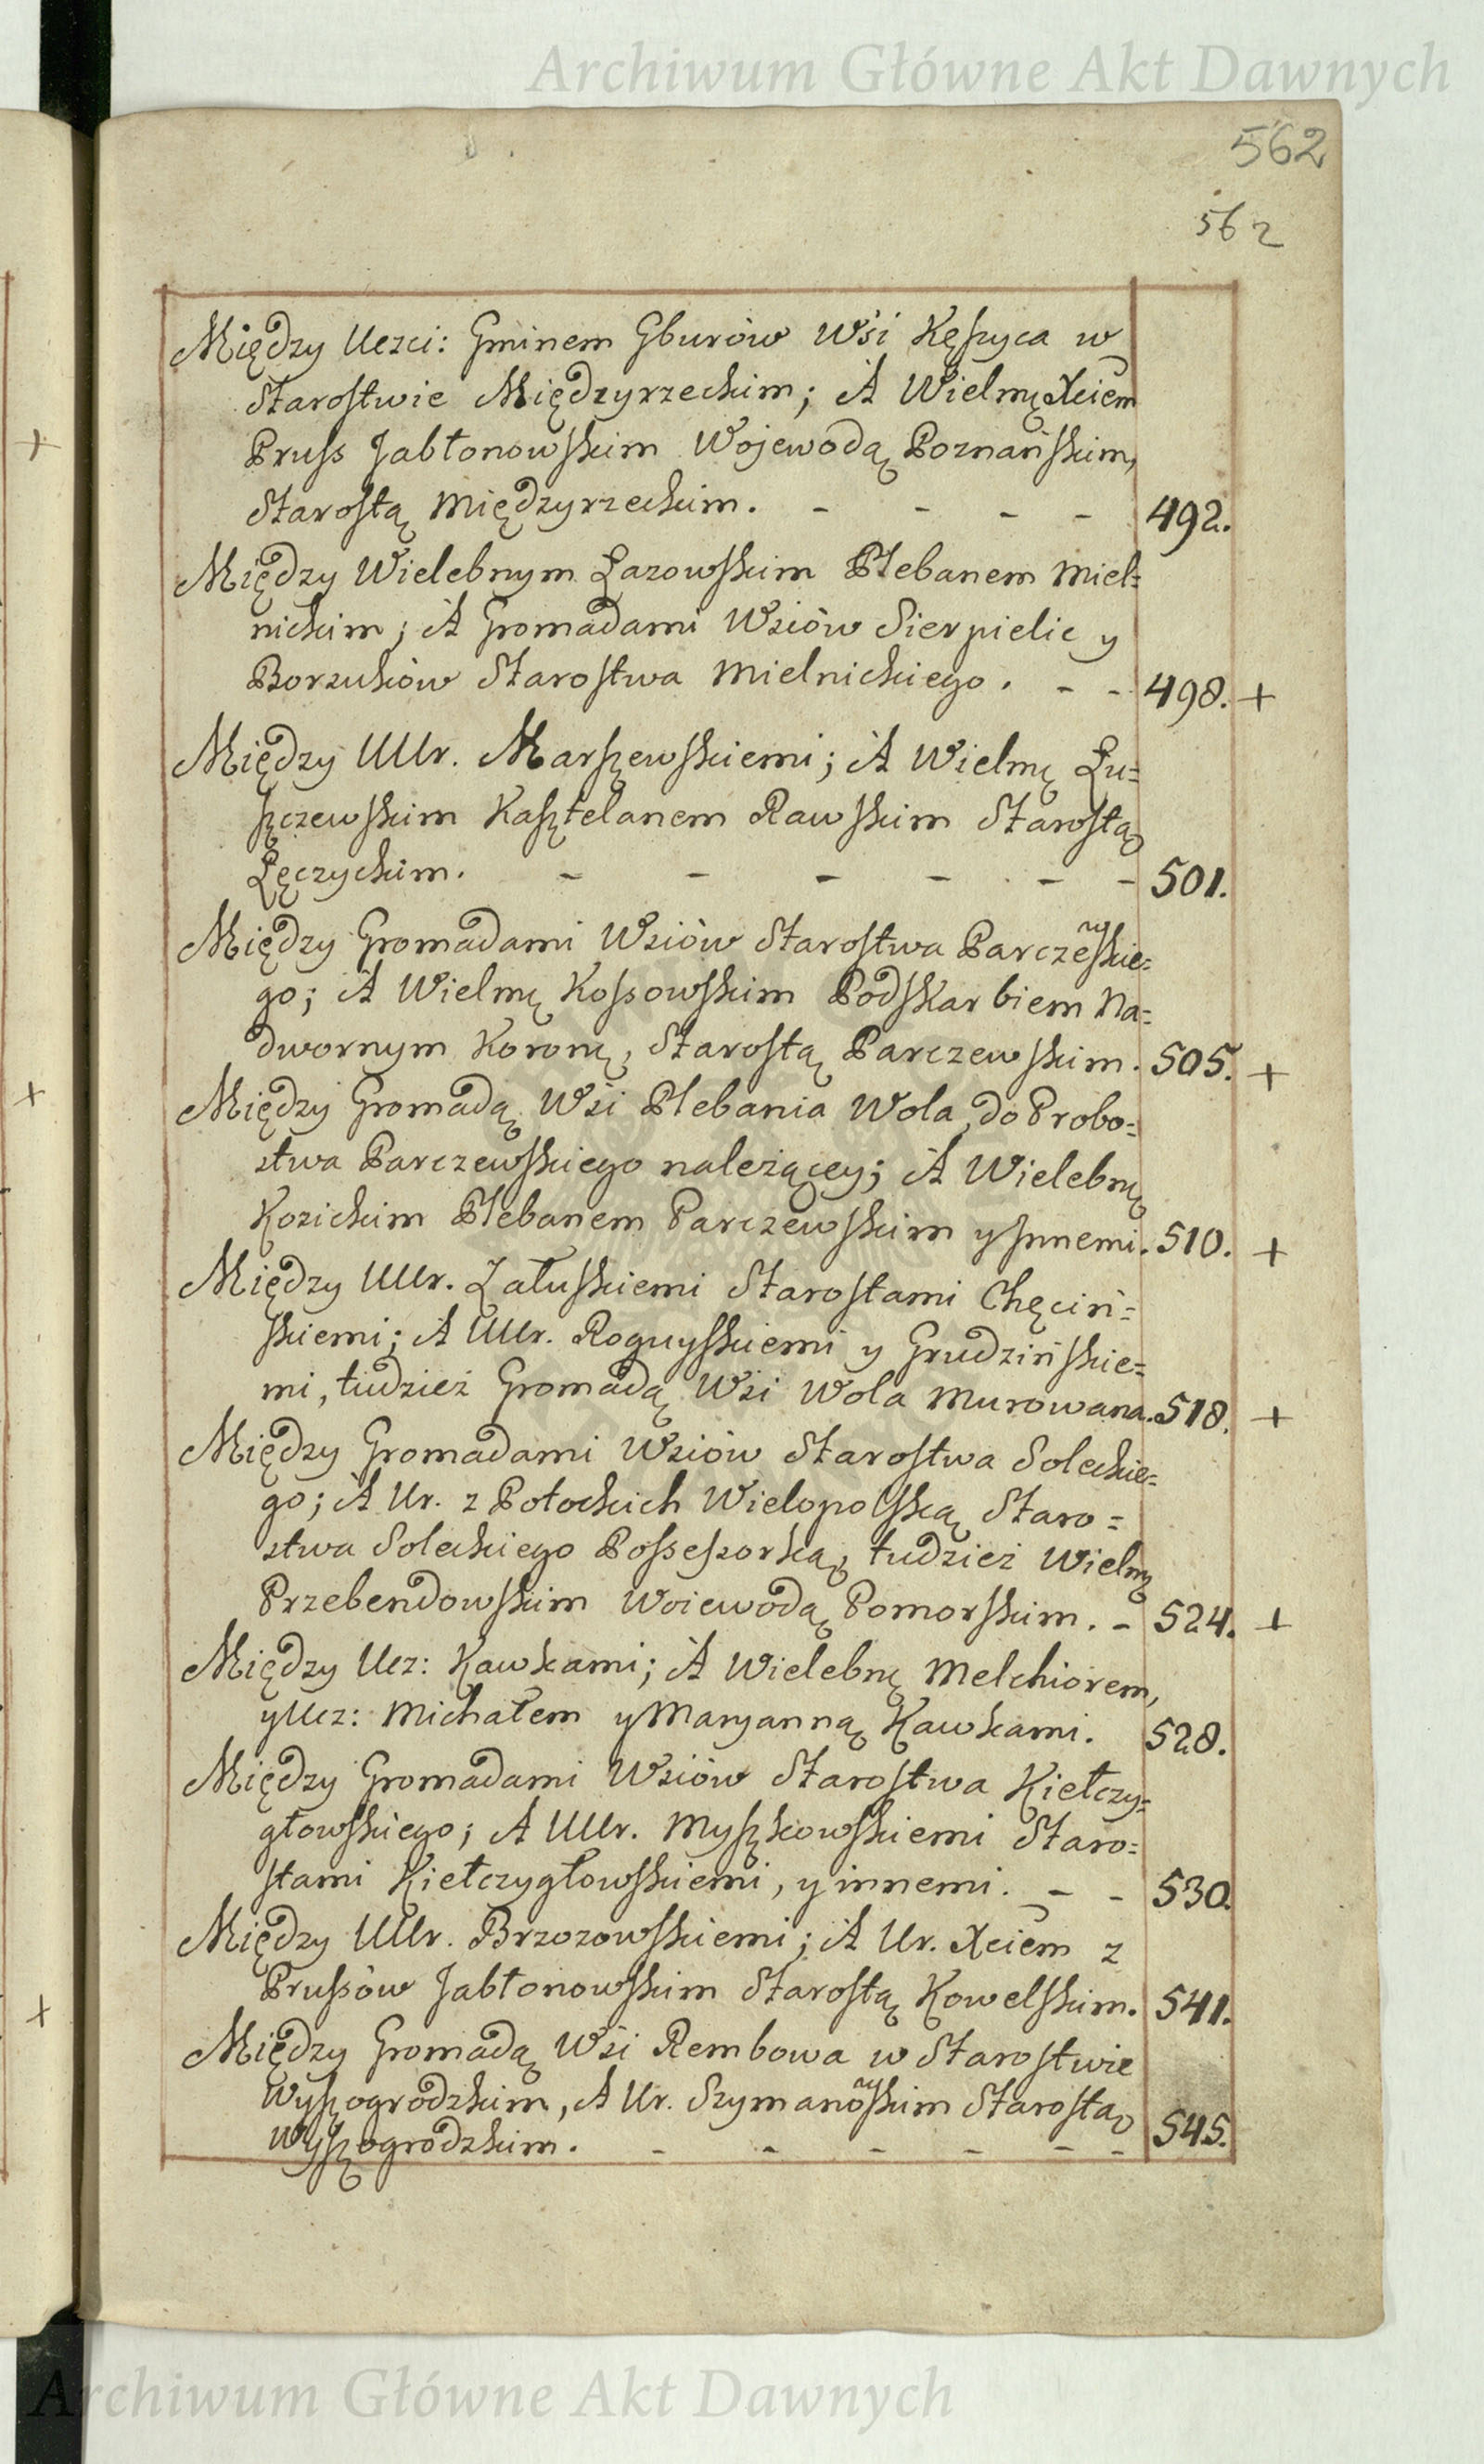 Archiwum Główne Akt Dawnych
562
562
Między Uczci: Gminem Gburów Wśi Kęszyca w
Starostwie Międzyrzeckim; A Wielmę Xciem
Pruss Jabłonowskim Wojewodą Poznańskim,
Starostą Międzyrzeckim. - - - - 492.
Między Wielebnym Łazowskim Plebanem Miel=
nickim; A Gromadami Wsiów Sierpielic y
Borsuków Starostwa Mielnickiego. - - 498. +
Między UUr. Marszewskiemi; A Wielmę Łu=
szczewskim Kasztelanem Rawskim Starostą
Łęczyckim. - - - - - - 501.
Między Gromadami Wsiów Starostwa Parczewskie=
go; A Wielmę Kossowskim Podskarbiem Na=
dwornym Koronę, Starostą Parczewskim. 505. +
Między Gromadą Wsi Plebania Wola, do Probo=
stwa Parczewskiego należącey; A Wielebnę
Kozickim Plebanem Parczewskim y Innemi. 510. +
Między UUr. Załuskiemi Starostami Chęciń=
skiemi; A UUr. Roguyskiemi y Grudzińskie=
mi, tudzież Gromadą Wsi Wola Murowana. 518. +
Między Gromadami Wsiów Starostwa Soleckie=
go; A Ur. z Potockich Wielopolską Staro=
stwa Soleckiego Possessorką, tudzież Wielmę
Przebendowskim Woiewodą Pomorskim. - 524. +
Między Ucz: Kawkami; A Wielebnę Melchiorem,
y Ucz: Michałem y Maryanną Kawkami. 528.
Między Gromadami Wsiów Starostwa Kiełczy=
głowskiego; A UUr. Myszkowskiemi Staro=
stami Kiełczygłowskiemi, y innemi. - - 530.
Między UUr. Brzozowskiemi; A Ur. Xciem z
Prussów Jabłonowskim Starostą Kowelskim. 541.
Między Gromadą Wsi Rembowa w Starostwie
Wyszogrodzkim, A Ur. Szymanowskim Starostą
Wyszogrodzkim. - - - - - - 545.
Archiwum Główne Akt Dawnych